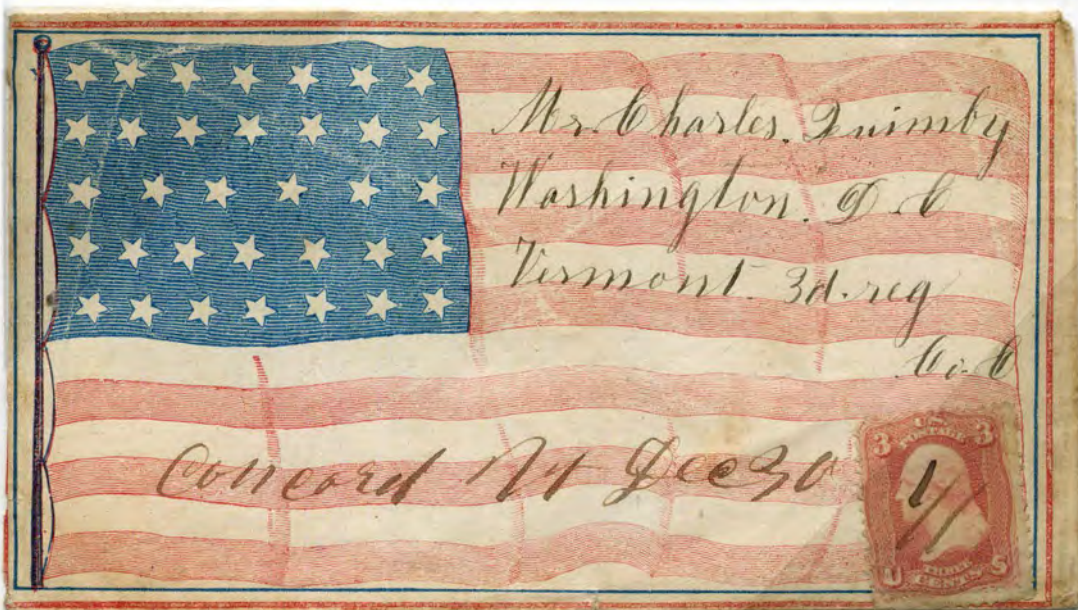 Mr. Charles. Quimby
Washington. D. C
Vermont. 3d. reg
Co. C
Concord Vt Dec 30
3 U.S. 3
POSTAGE
U THREE S
CENTS